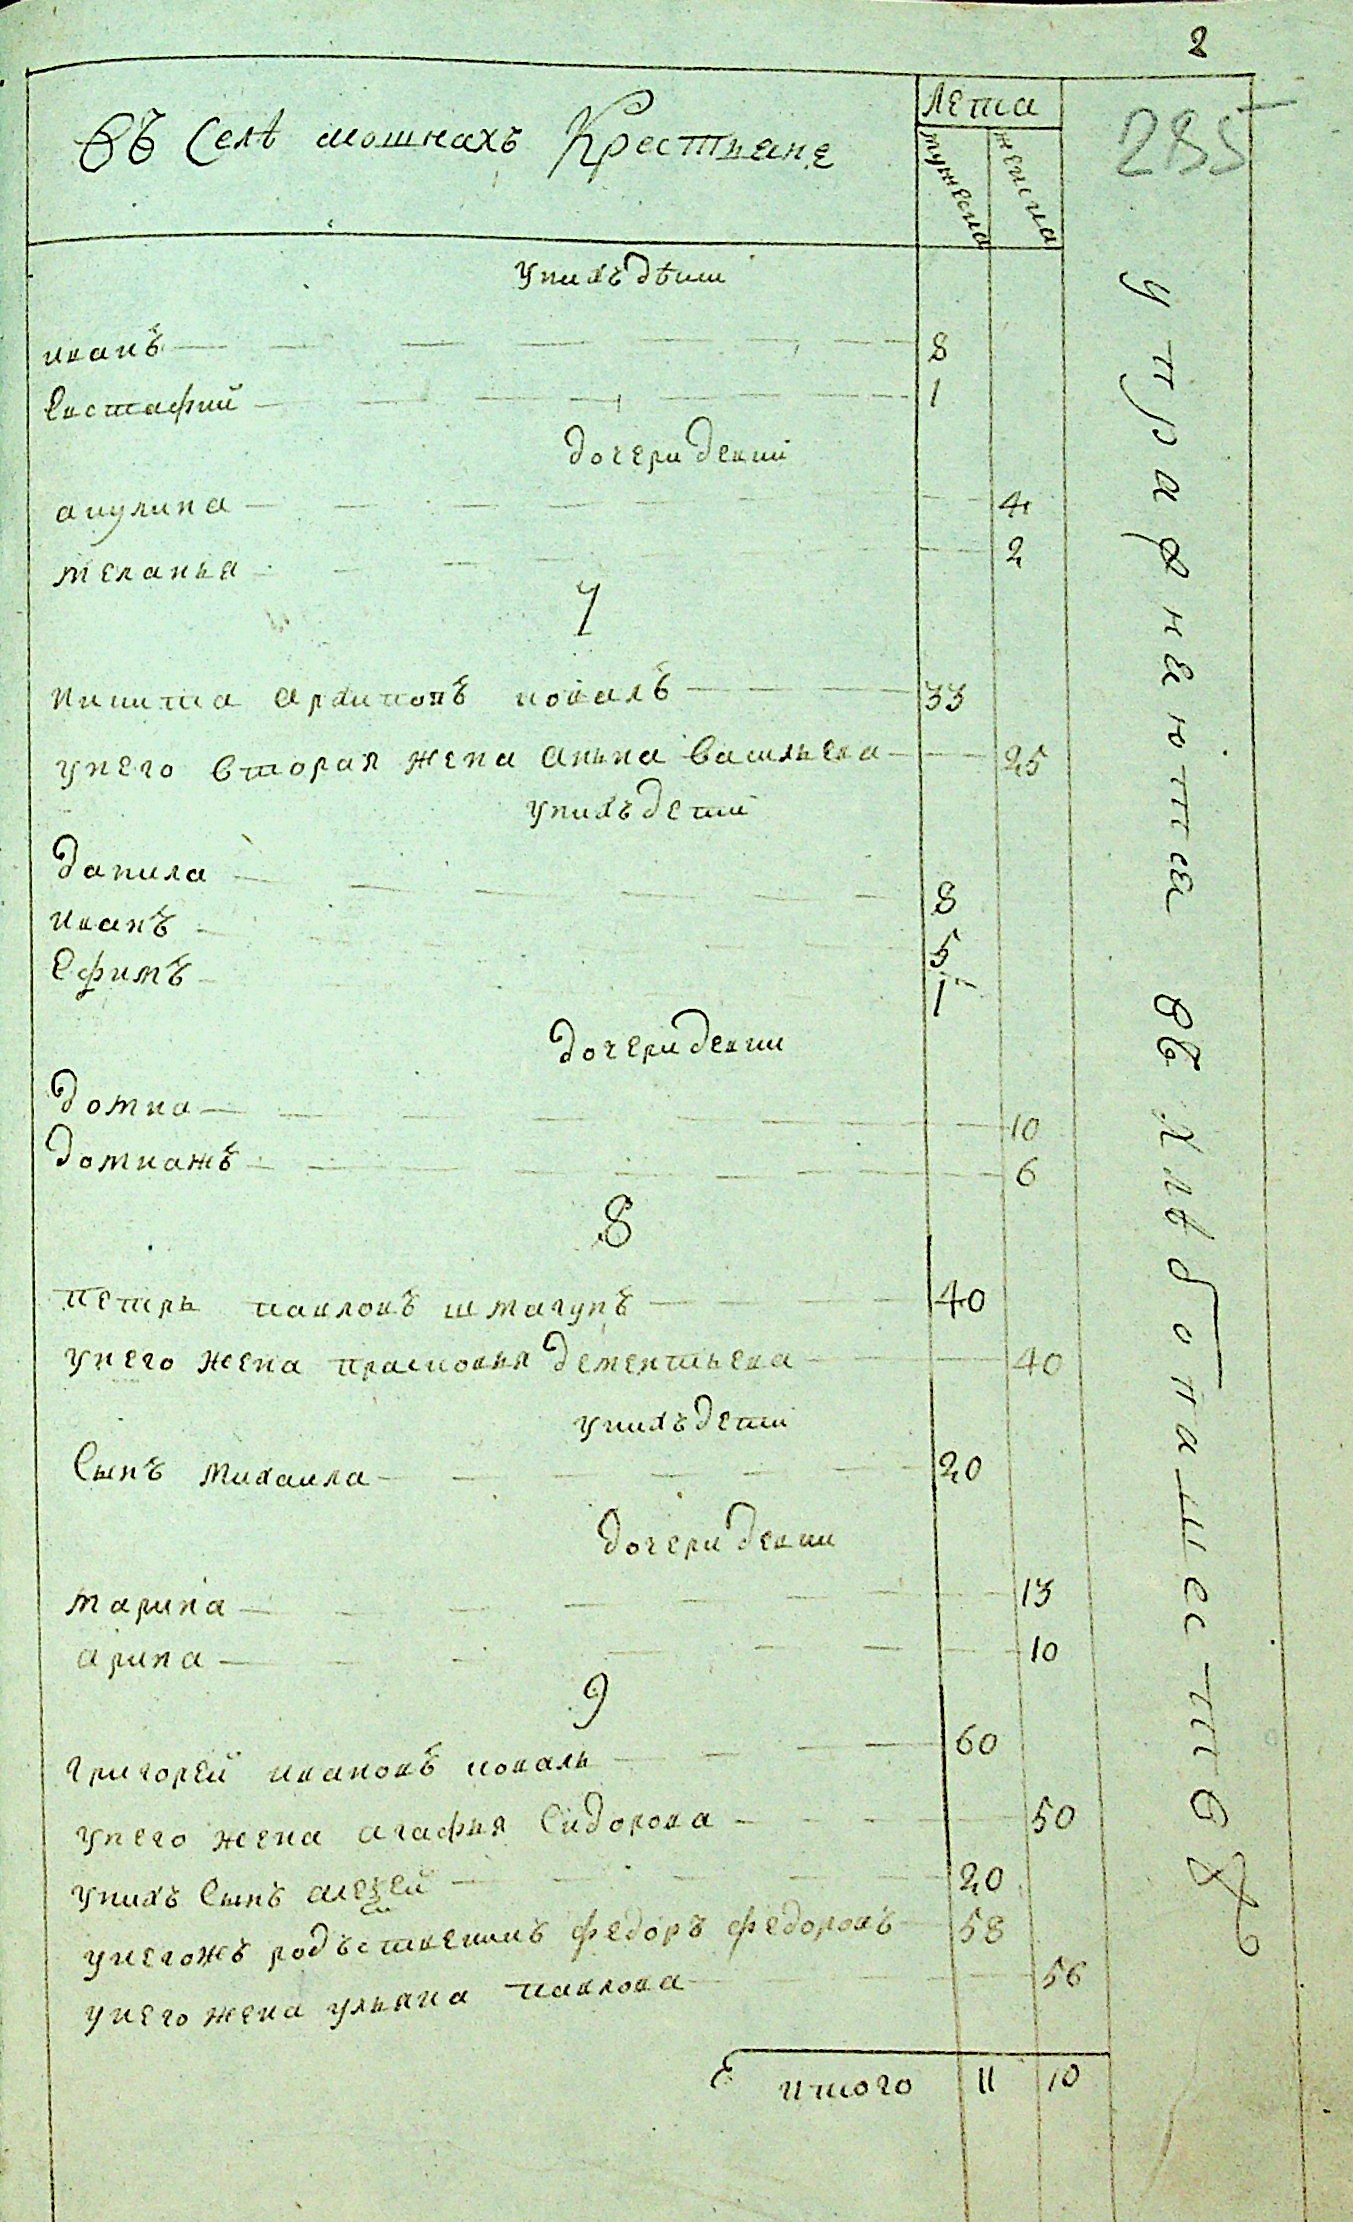 2
въ Селѣ мошнахъ Крестъяне
лета
мужеска
женска
285
унихъ дѣти
иванъ 8
Евстафий 1
дочери девки
акулина 4
меланья 2
7
никита архиповъ коваль 33
унего вторая жена анъна васильева 25
унихъ дети
данила 8
иванъ 5
Ефимъ 1
дочери девки
домна 10
домнажъ 6
8
петръ павловъ шмагунъ 40
унего жена прасковья дементьева 40
унихъ дети
Сынъ михаила 20
дочери девки
марина 13
арина 10
9
григорей ивановъ коваль 60
унего жена агафья Сидорова 50
унихъ Сынъ алеѯей 20
унегожъ родъственикъ федоръ федоровъ 58
унего жена ульяна павлова 56
итого 11 10
упражняются въ хлѣбопашествѣ